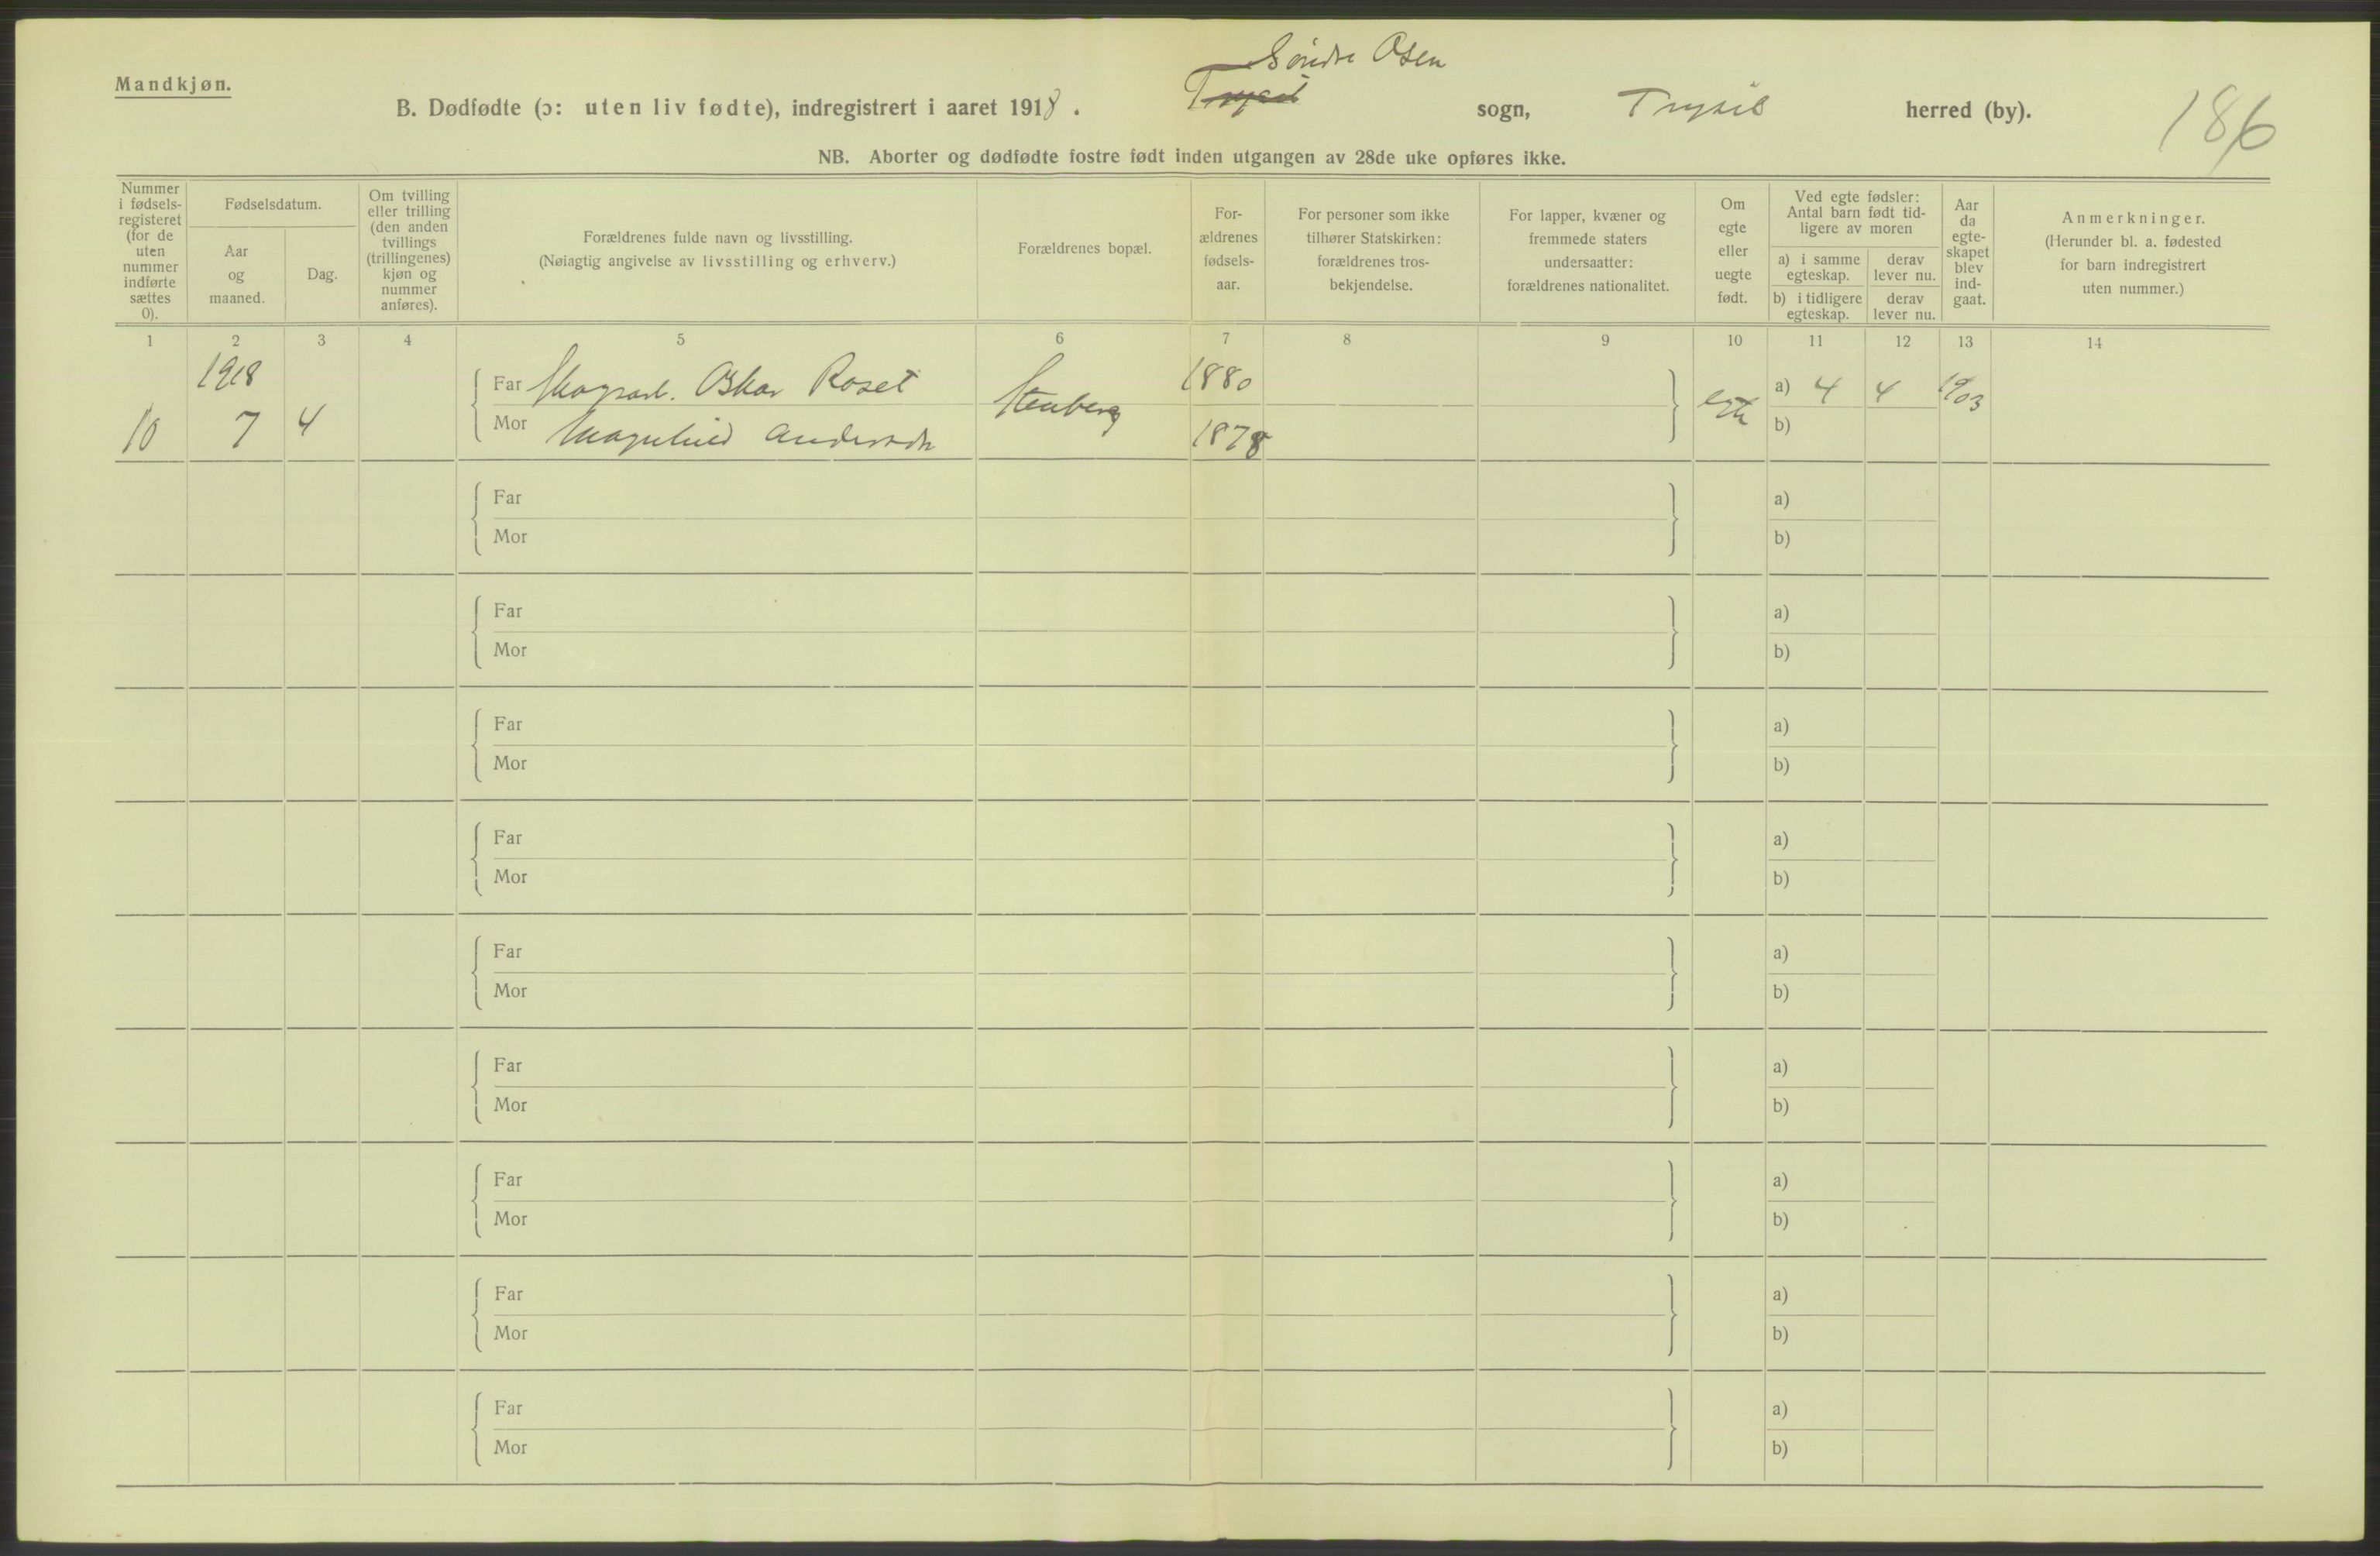 Mandkjøn.
Søndre Osen
B. Dødfødte (ɔ: uten liv fødte), indregistrert i aaret 1918. Trysil sogn, Trysil herred (by).
186
NB. Aborter og dødfødte fostre født inden utgangen av 28de uke opføres ikke.
Nummer
i fødsels-
registeret
(for de
uten
nummer
indførte
sættes
0).
Fødselsdatum.
Aar
og
maaned.
Dag.
Om tvilling
eller trilling
(den anden
tvillings
(trillingenes)
kjøn og
nummer
anføres).
Forældrenes fulde navn og livsstilling.
(Nøiagtig angivelse av livsstilling og erhverv.)
Forældrenes bopæl.
For-
ældrenes
fødsels-
aar.
For personer som ikke
tilhører Statskirken:
forældrenes tros-
bekjendelse.
For lapper, kvæner og
fremmede staters
undersaatter:
forældrenes nationalitet.
Om
egte
eller
uegte
født.
Ved egte fødsler:
Antal barn født tid-
ligere av moren
a) i samme
egteskap.
derav
lever nu.
b) i tidligere
egteskap.
derav
lever nu.
Aar
da
egte-
skapet
blev
ind-
gaat.
Anmerkninger.
(Herunder bl. a. fødested
for barn indregistrert
uten nummer.)
1 2 3 4 5 6 7 8 9 10 11 12 13 14
1918 Far Skogsarb. Oskar Roset Stenberg 1880 egte a) 4 4 1903
10 7 4 Mor Magnhild Andersdtr 1878 b)
Far a)
Mor b)
Far a)
Mor b)
Far a)
Mor b)
Far a)
Mor b)
Far a)
Mor b)
Far a)
Mor b)
Far a)
Mor b)
Far a)
Mor b)
Far a)
Mor b)